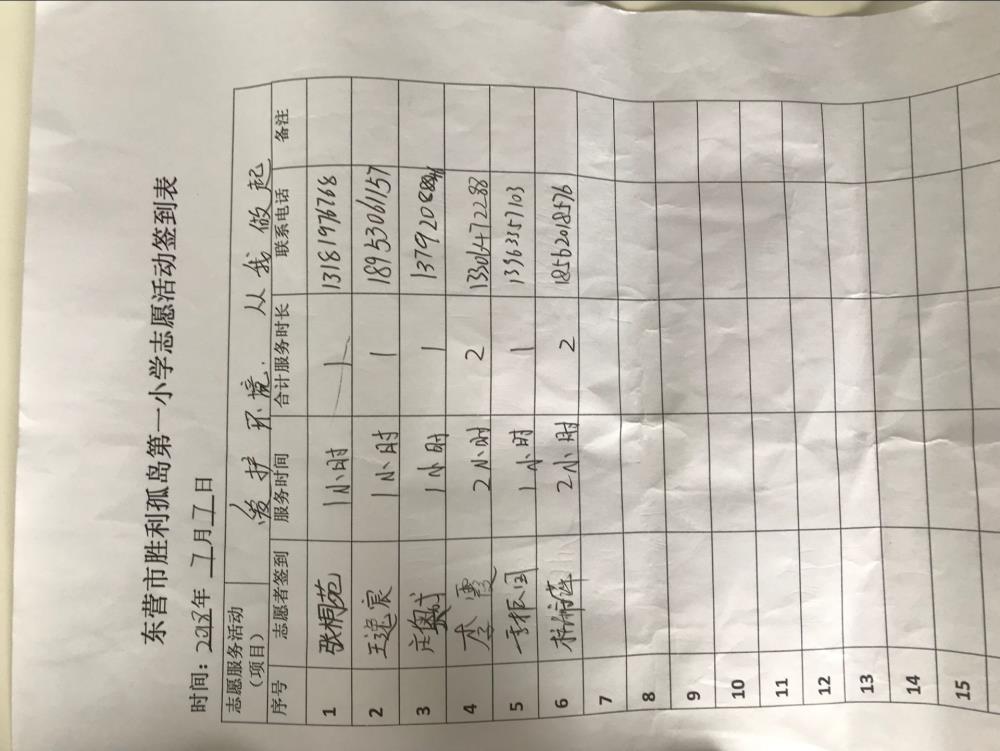 东营市胜利孤岛第一小学志愿活动签到表
时间：2018年 7月7日
志愿服务活动（项目） 爱护环境，从我做起
序号 志愿者签到 服务时间 合计服务时长 联系电话 备注
1 张桐苑 1小时 1 13181976768
2 王逸宸 1小时 1 18953061157
3 庄 1小时 1 1379208
4 李霞 2小时 2 13306472288
5 李振国 1小时 1 13963357103
6 2小时 2 18562018576
7
8
9
10
11
12
13
14
15